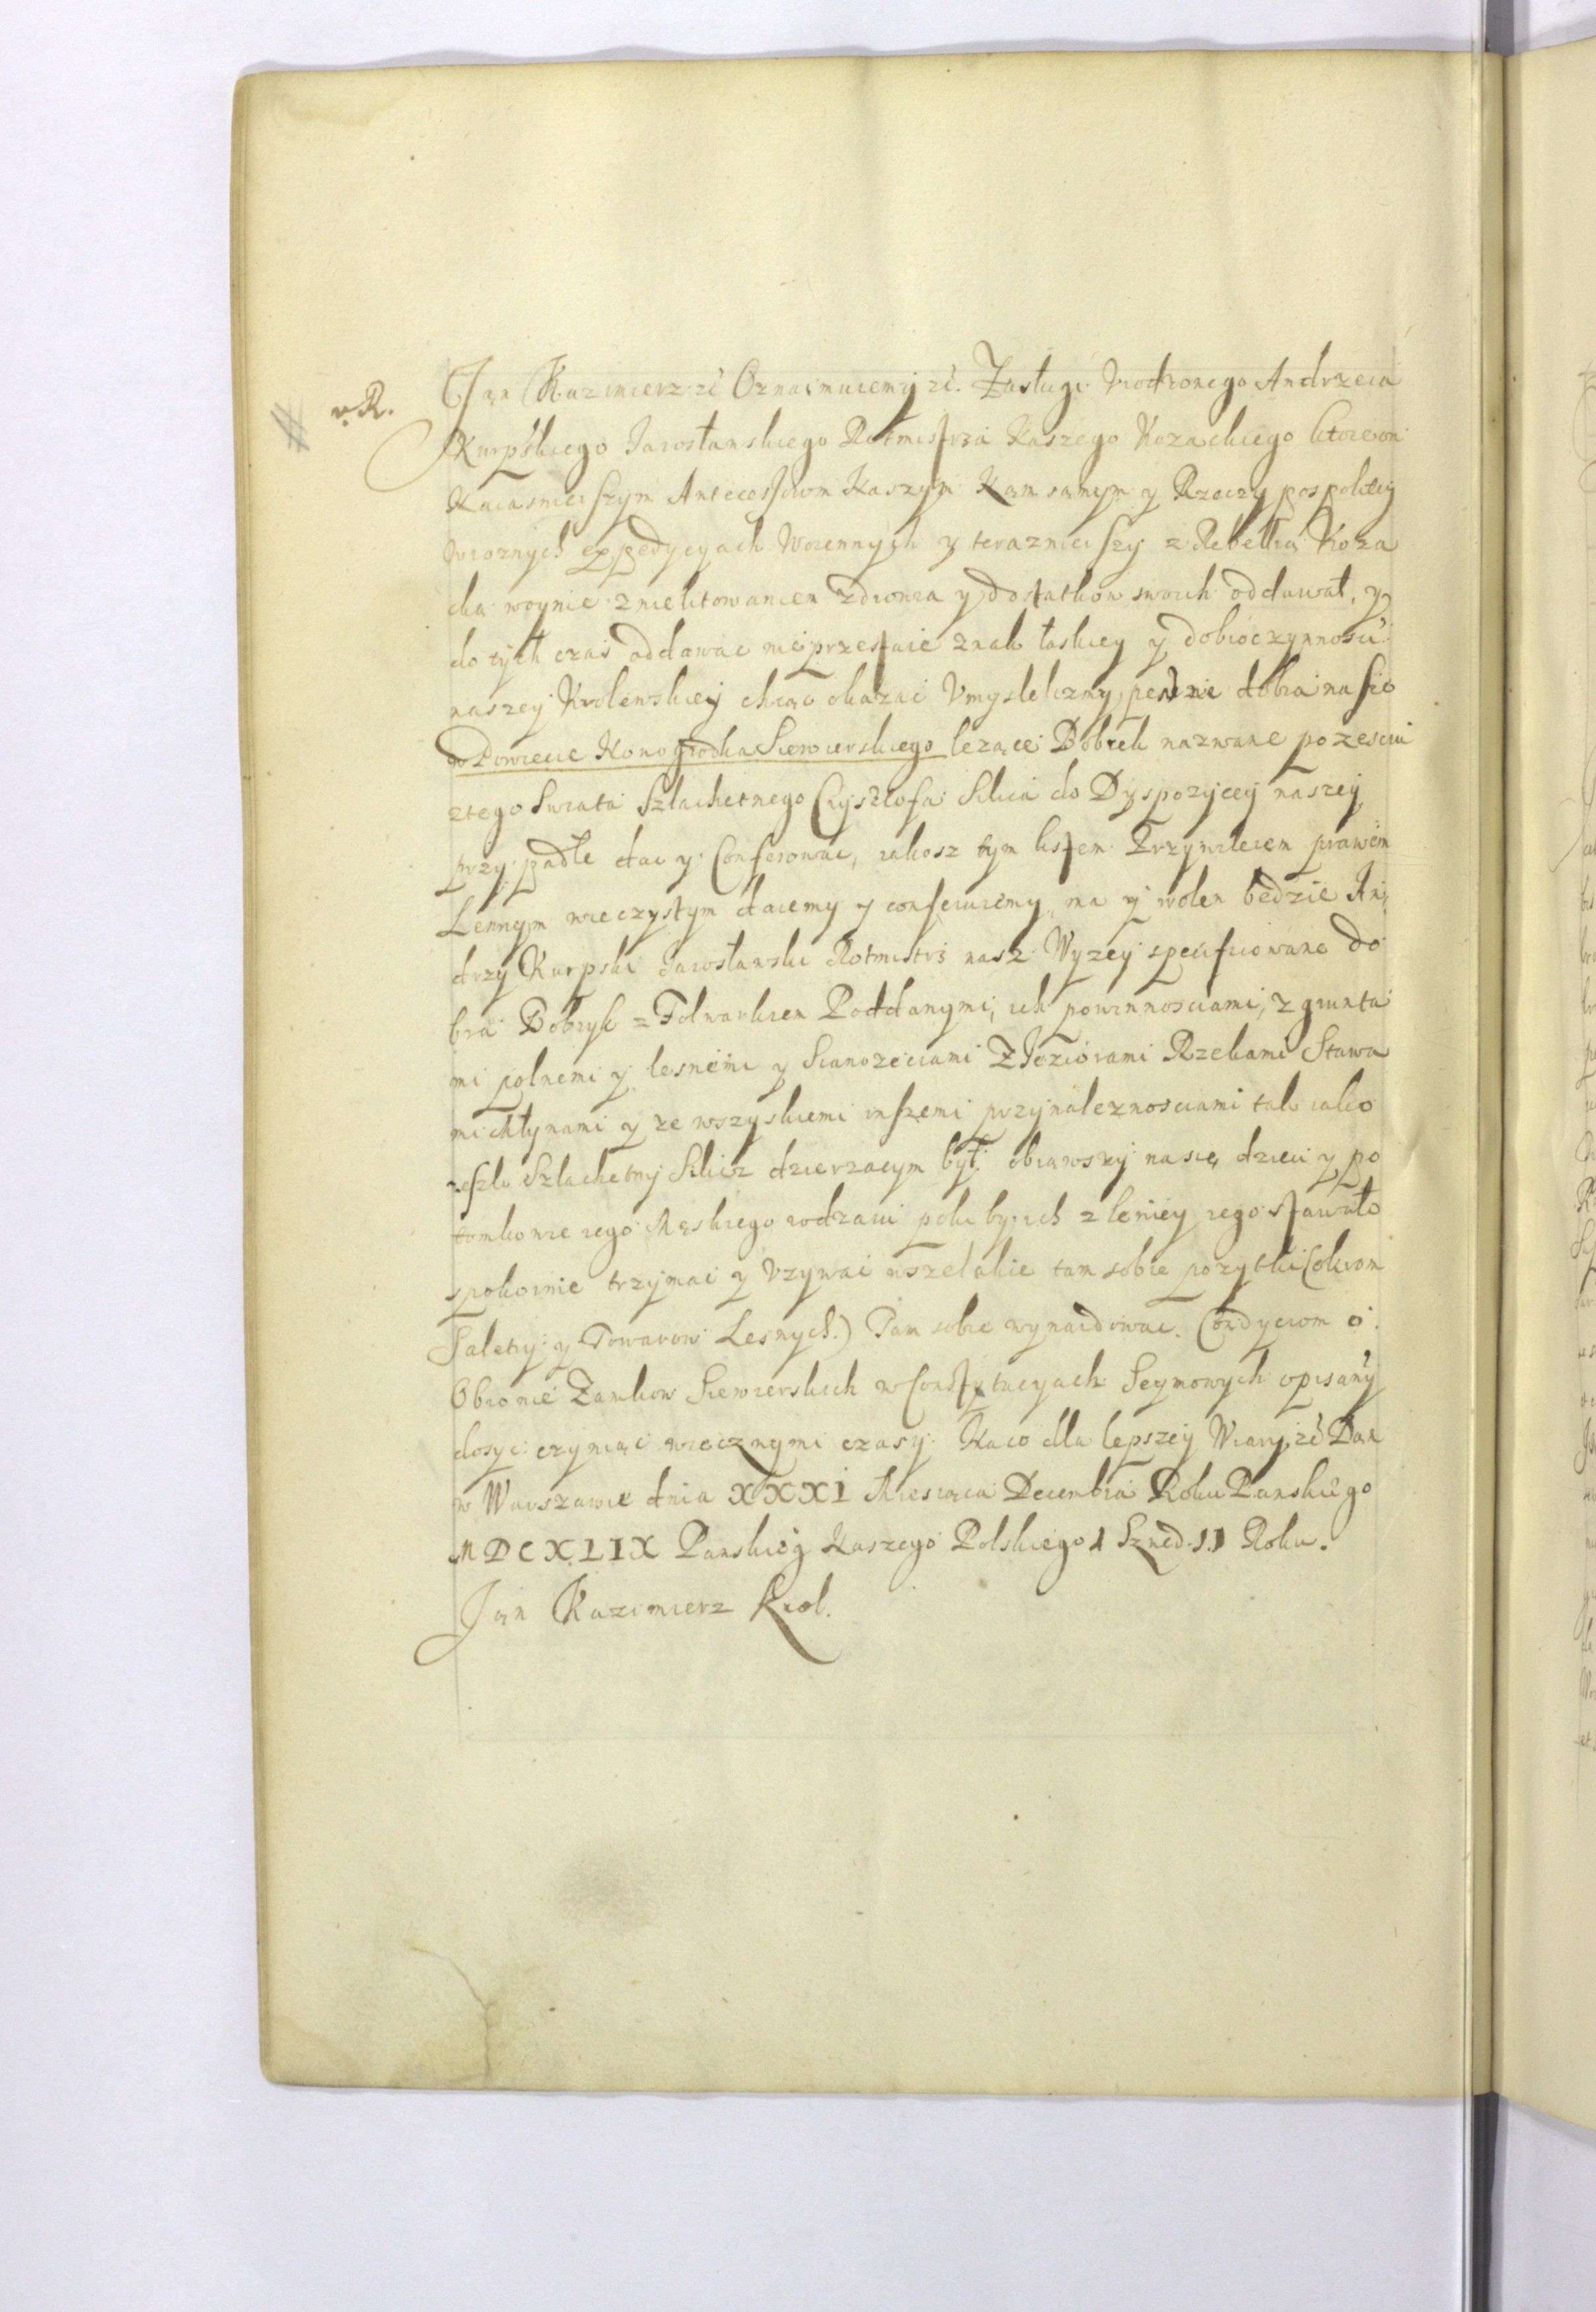 v. R.
Jan Kazimierz zc Oznaimuiemy zc. Zasługi Vrodzonego Andrzeia
Kurpskiego Jarosławskiego Rotmistrza Naszego Kozackiego ktore on
Naiasnieiszym Antecessorom Naszym Nam samym y Rzeczypospolitey
w roznych expedycyach Woiennych y teraznieiszy z Rebellią Koza
cką woynie z nielitowaniem zdrowia y dostatkow swoich oddawał, y
do tych czas oddawac nie przestaie znak łaskiey y dobroczynnosci
naszey Krolewskiey chcąc okazac Vmyslelizmy, pewne dobra na sie
w Powiecie Nowogrodka Siewierskiego lezące Dobrek nazwane po zesciu
z tego swiata Szlachetnego Chrysztofa Silicza do Dyspozycey naszey
przypadłe dac y Conferowac, iakosz tym listem Przywileiem prawem
Lennym wieczystym daiemy y conferuiemy, ma y wolen będzie An
drzy Kurpski Jarosławski Rotmistrz nasz Wyzey specifikowane do
bra Dobryk z Folwarkiem Poddanymi, ich powinnosciami, z grunta
mi polnemi y lesnemi y Sianozęciami z Jeziorami Rzekami Stawa
mi Młynami y ze wszyskiemi inszemi przynaleznosciami tak iako
zeszły Szlachetny Silicz dzierzacym był obiąwszy na się dzieci y po
tomkowie iego Męskiego rodzaiu poki by ich z liniey iego stawało
spokoinie trzymac y Vzywac wszelakie tam sobie pozytki (okrom
Saletry y Towarow Lesnych.) Tam sobie wynaidowac. Condyciom o
Obronie Zamkow Siewierskich w Constytucyach Seymowych opisany
dosyc czyniąc wiecznymi czasy. Na co dla lepszey Wiary, zc Dan
w Warszawie dnia XXXI Miesiąca Decembra Roku Panskiego
MDCXLIX Panskiey Naszego Polskiego I Szwed. II Roku.
Jan Kazimierz Krol.